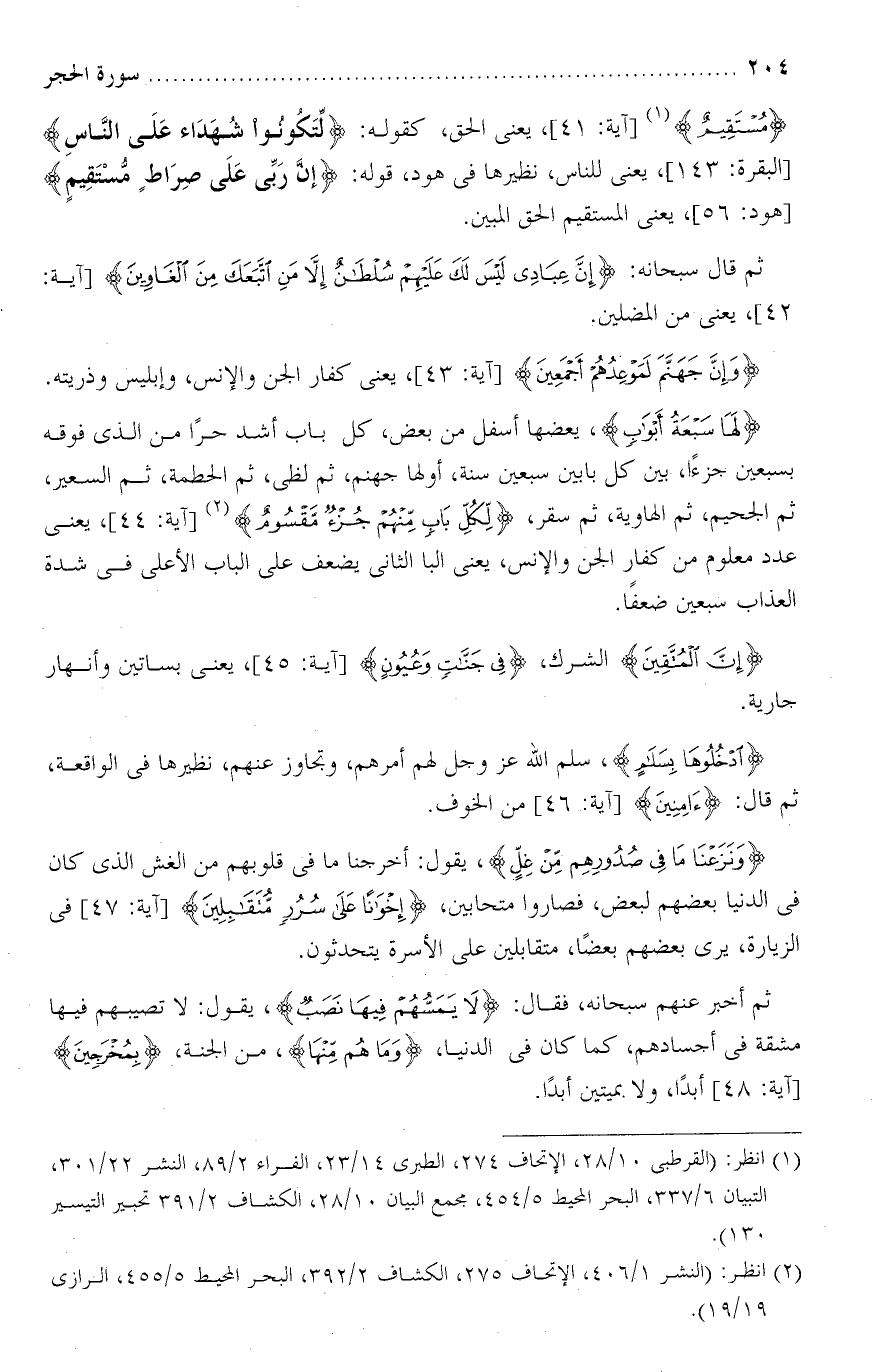 ٢٠٤ ........................................................................ سورة الحجر
﴿مُسْتَقِيمٌ﴾(١) [آية: ٤١]، يعنى الحق، كقوله: ﴿لِّتَكُونُواْ شُهَدَاء عَلَى النَّاسِ﴾
[البقرة: ١٤٣]، يعنى للناس، نظيرها فى هود، قوله: ﴿إنَّ رَبِّى عَلَى صِرَاطٍ مُّسْتَقِيمٍ﴾
[هود: ٥٦]، يعنى المستقيم الحق المبين.
ثم قال سبحانه: ﴿إِنَّ عِبَادِى لَيْسَ لَكَ عَلَيْهِمْ سُلْطَٰنٌ إِلَّا مَنِ اتَّبَعَكَ مِنَ الْغَاوِينَ﴾ [آية:
٤٢]، يعنى من المضلين.
﴿وَإِنَّ جَهَنَّمَ لَمَوْعِدُهُمْ أَجْمَعِينَ﴾ [آية: ٤٣]، يعنى كفار الجن والإنس، وإبليس وذريته.
﴿لَهَا سَبْعَةُ أَبْوَابٍ﴾، بعضها أسفل من بعض، كل باب أشد حرًا من الذى فوقه
بسبعين جزءًا، بين كل بابين سبعين سنة، أولها جهنم، ثم لظى، ثم الحطمة، ثم السعير،
ثم الجحيم، ثم الهاوية، ثم سقر، ﴿لِّكُلِّ بَابٍ مِّنْهُمْ جُزْءٌ مَّقْسُومٌ﴾(٢) [آية: ٤٤]، يعنى
عدد معلوم من كفار الجن والإنس، يعنى البا الثانى يضعف على الباب الأعلى فى شدة
العذاب سبعين ضعفًا.
﴿إِنَّ الْمُتَّقِينَ﴾ الشرك، ﴿فِى جَنَّٰتٍ وَعُيُونٍ﴾ [آية: ٤٥]، يعنى بساتين وأنهار
جارية.
﴿ادْخُلُوهَا بِسَلَٰمٍ﴾، سلم الله عز وجل لهم أمرهم، وتجاوز عنهم، نظيرها فى الواقعة،
ثم قال: ﴿ءَامِنِينَ﴾ [آية: ٤٦] من الخوف.
﴿وَنَزَعْنَا مَا فِى صُدُورِهِم مِّنْ غِلٍّ﴾، يقول: أخرجنا ما فى قلوبهم من الغش الذى كان
فى الدنيا بعضهم لبعض، فصاروا متحابين، ﴿إِخْوَٰنًا عَلَىٰ سُرُرٍ مُّتَقَٰبِلِينَ﴾ [آية: ٤٧] فى
الزيارة، يرى بعضهم بعضًا، متقابلين على الأسرة يتحدثون.
ثم أخبر عنهم سبحانه، فقال: ﴿لَا يَمَسُّهُمْ فِيهَا نَصَبٌ﴾، يقول: لا تصيبهم فيها
مشقة فى أجسادهم، كما كان فى الدنيا، ﴿وَمَا هُم مِّنْهَا﴾، من الجنة، ﴿بِمُخْرَجِينَ﴾
[آية: ٤٨] أبدًا، ولا بميتين أبدًا.
(١) انظر: (القرطبى ٢٨/١٠، الإتحاف ٢٧٤، الطبرى ٢٣/١٤، الفراء ٨٩/٢، النشر ٣٠١/٢٢،
التبيان ٣٣٧/٦، البحر المحيط ٤٥٤/٥، مجمع البيان ٢٨/١٠، الكشاف ٣٩١/٢ تحبير التيسير
١٣٠).
(٢) انظر: (النشر ٤٠٦/١، الإتحاف ٢٧٥، الكشاف ٣٩٢/٢، البحر المحيط ٤٥٥/٥، الرازى
١٩/١٩).